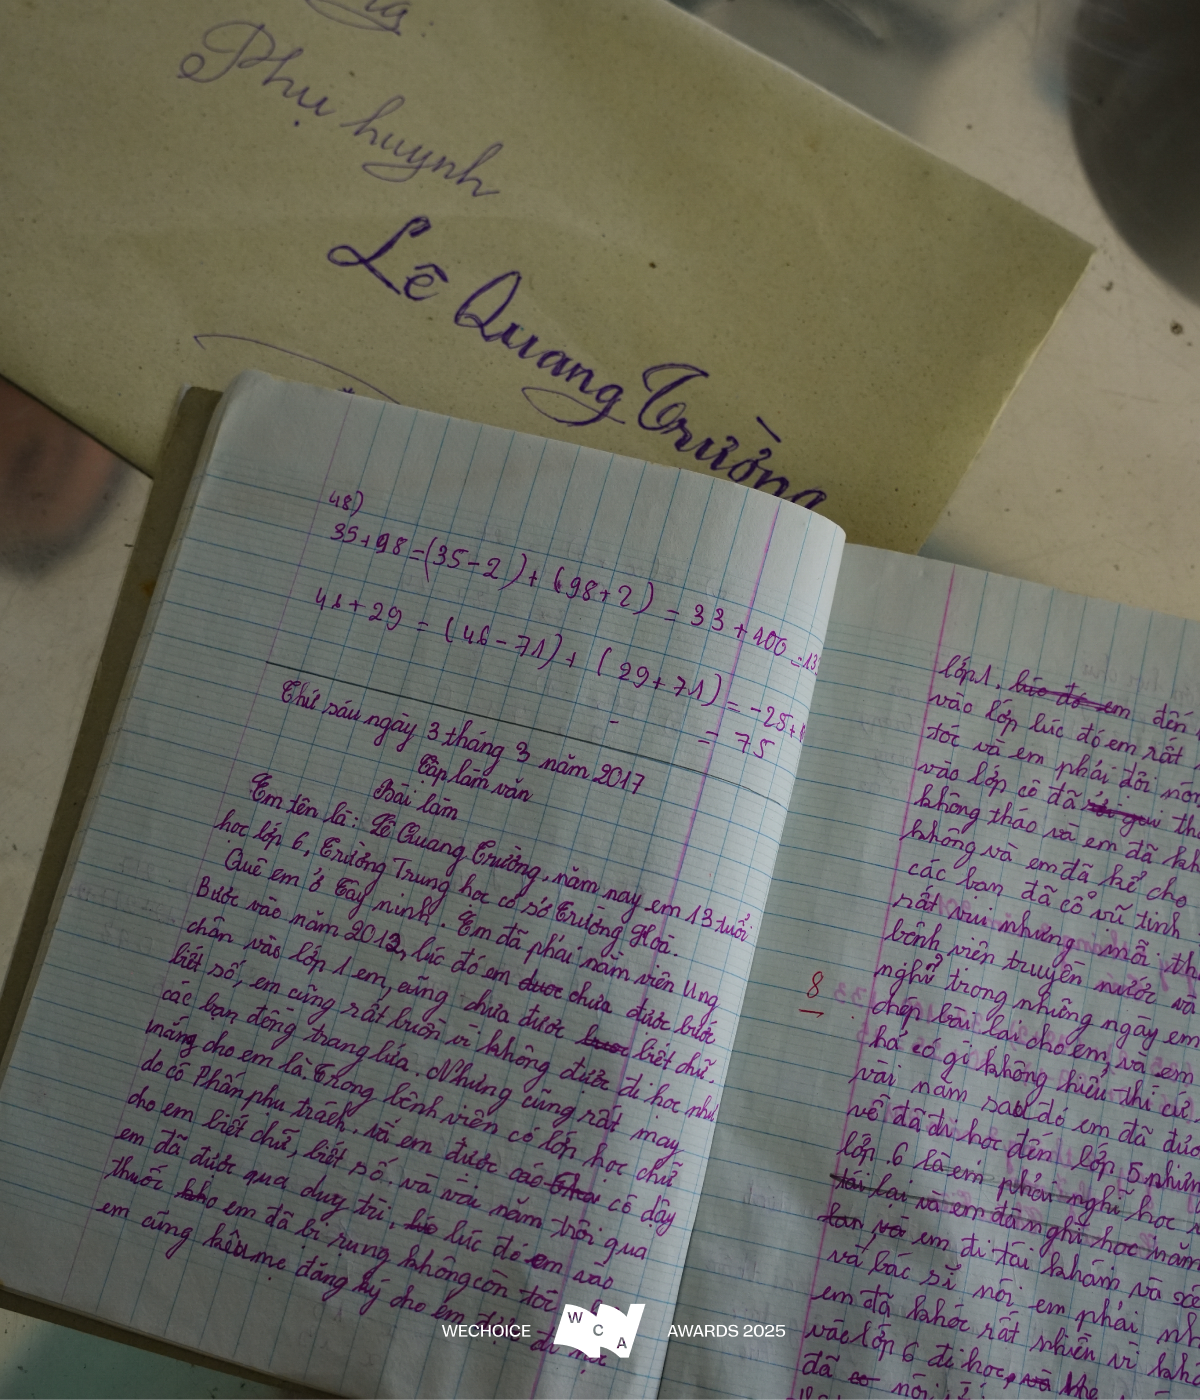 Phụ huynh
Lê Quang Trưởng
48)
35+98=(35-2)+(98+2) = 33 + 100 =13
46+29 = (46-71)+(29+71) = -25+
= 75
Thứ sáu ngày 3 tháng 3 năm 2017
Tập làm văn
Bài làm
Em tên là: Lê Quang Trưởng, năm nay em 13 tuổi
học lớp 6, Trường Trung học cơ sở Trường Hoà.
Quê em ở Tây ninh. Em đã phải nằm viện Ung
Bước vào năm 2012, lúc đó em được chưa được bước
chân vào lớp 1 em, cũng chưa được biết chữ.
biết số, em cũng rất buồn vì không được đi học như
các bạn đồng trang lứa. Nhưng cũng rất may
mắng cho em là. Trong bệnh viện có lớp học chữ
do cô Phấn phụ trách. và em được các cô dậy
cho em biết chữ, biết số. và vài năm trôi qua
em đã được qua duy trì, lúc đó em vào
thuốc em đã bị rụng không còn tóc
em cũng kêu mẹ đăng ký cho em được đi học
lớp 1. lúc đó em đến
vào lớp lúc đó em rất
tóc và em phải đội nón
vào lớp cô đã
không tháo và em đã kh
không và em đã kể cho
các bạn đã cổ vũ tinh
rất vui nhưng mỗi th
bệnh viện truyền nước và
nghỉ trong những ngày em
chép bài lại cho em, và em
hả có gì không hiểu thì cứ
vài năm sau đó em đã đượ
về đã đi học đến lớp 5 nhưn
lớp 6 là em phải nghỉ học
tái lại và em đã nghỉ học năm
em đi tái khám và
và bác sĩ nói em phải nh
em đã khóc rất nhiều vì khô
vào lớp 6 đi học, và
đã có nói
8
WECHOICE
WCA
AWARDS 2025